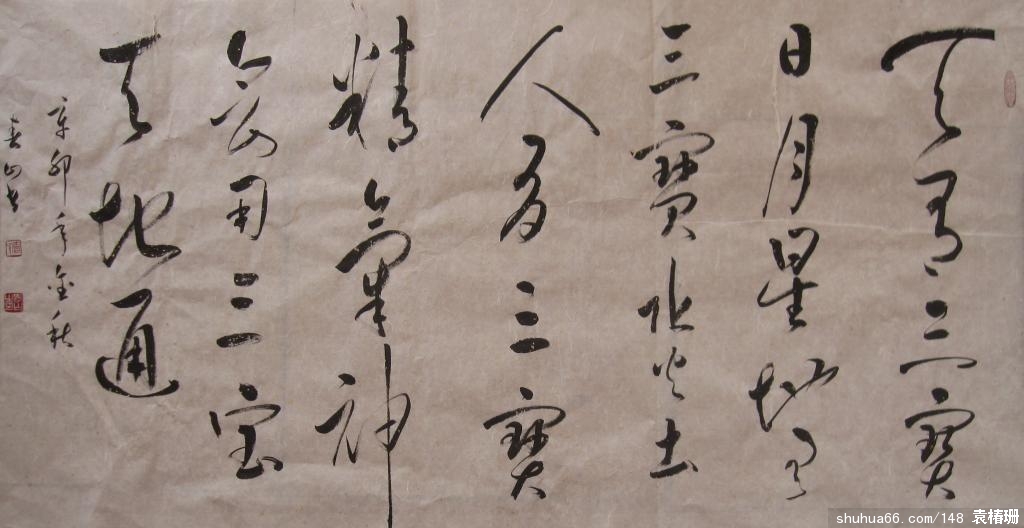 天有三寶
日月星地有
三寶水火土
人有三寶
精氣神
会用三宝
天地通
辛卯年金秋
春山书
shuhua66.com/148 袁椿珊